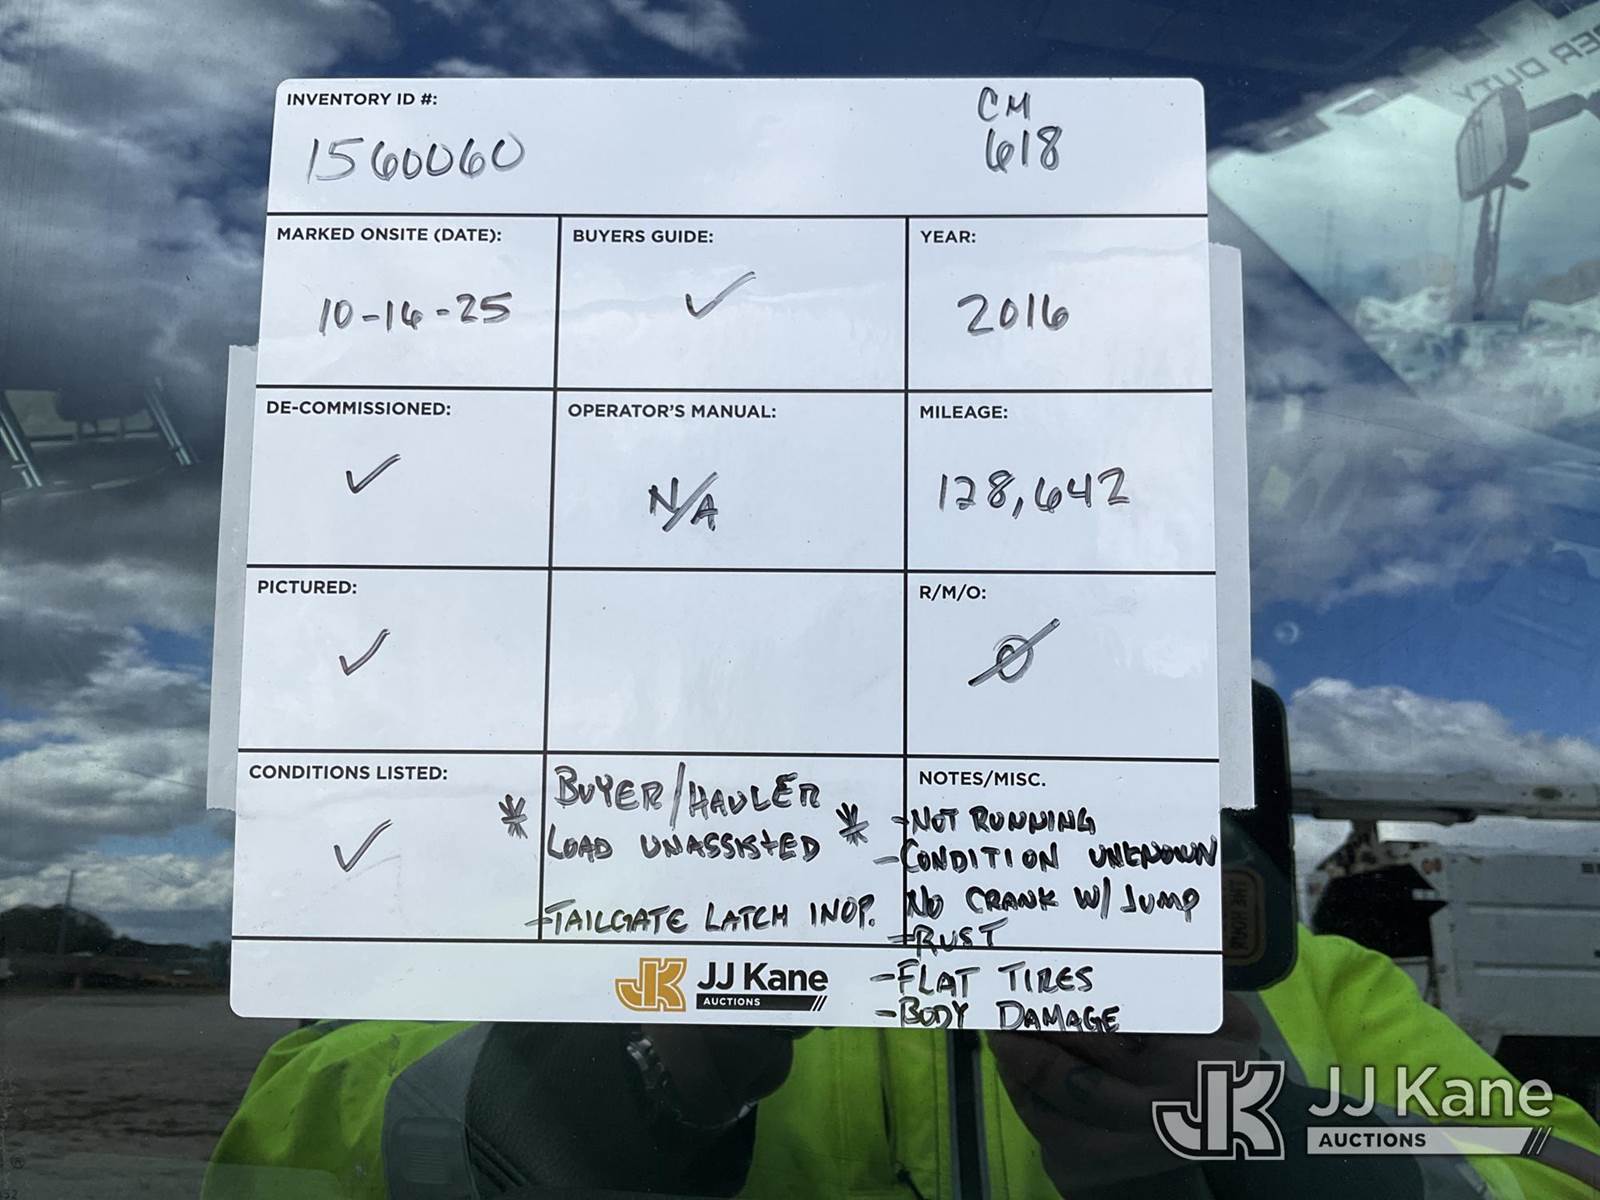 INVENTORY ID #:
1560060
CM
618
MARKED ONSITE (DATE):
10-16-25
BUYERS GUIDE:
✓
YEAR:
2016
DE-COMMISSIONED:
✓
OPERATOR'S MANUAL:
N/A
MILEAGE:
128,642
PICTURED:
✓
R/M/O:
Ø
CONDITIONS LISTED:
✓
* BUYER/HAULER *
LOAD UNASSISTED
-TAILGATE LATCH INOP.
NOTES/MISC.
-NOT RUNNING
-CONDITION UNKNOWN
NO CRANK W/ JUMP
-RUST
-FLAT TIRES
-BODY DAMAGE
JJ Kane
AUCTIONS
SUPER DUTY
JJ Kane
AUCTIONS